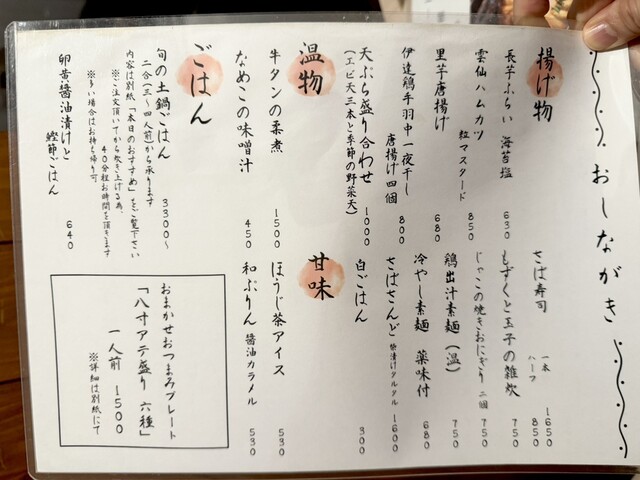 おしながき
揚げ物
長芋ふらい 海苔塩 630
雲仙ハムカツ 粒マスタード 850
里芋唐揚げ 680
伊達鶏手羽中一夜干し
唐揚げ四個 800
天ぷら盛り合わせ 1000
(エビ天三本と季節の野菜天)
温物
牛タンの柔煮 1500
なめこの味噌汁 450
ごはん
旬の土鍋ごはん 3300~
二合(三~四人前)から承ります
内容は別紙「本日のおすすめ」をご覧下さい
※ご注文頂いてから炊き上げる為、
40分程お時間を頂きます
※多い場合はお持ち帰り可
卵黄醤油漬けと
鰹節ごはん 640
さば寿司 一本 1650
ハーフ 850
もずくと玉子の雑炊 750
じゃこの焼きおにぎり 二個 750
鶏出汁素麺(温) 750
冷やし素麺 薬味付 680
さばさんど 柴漬けタルタル 1600
白ごはん 300
甘味
ほうじ茶アイス 530
和ぷりん 醤油カラメル 530
おまかせおつまみプレート
「八寸アテ盛り 六種」
一人前 1500
※詳細は別紙にて